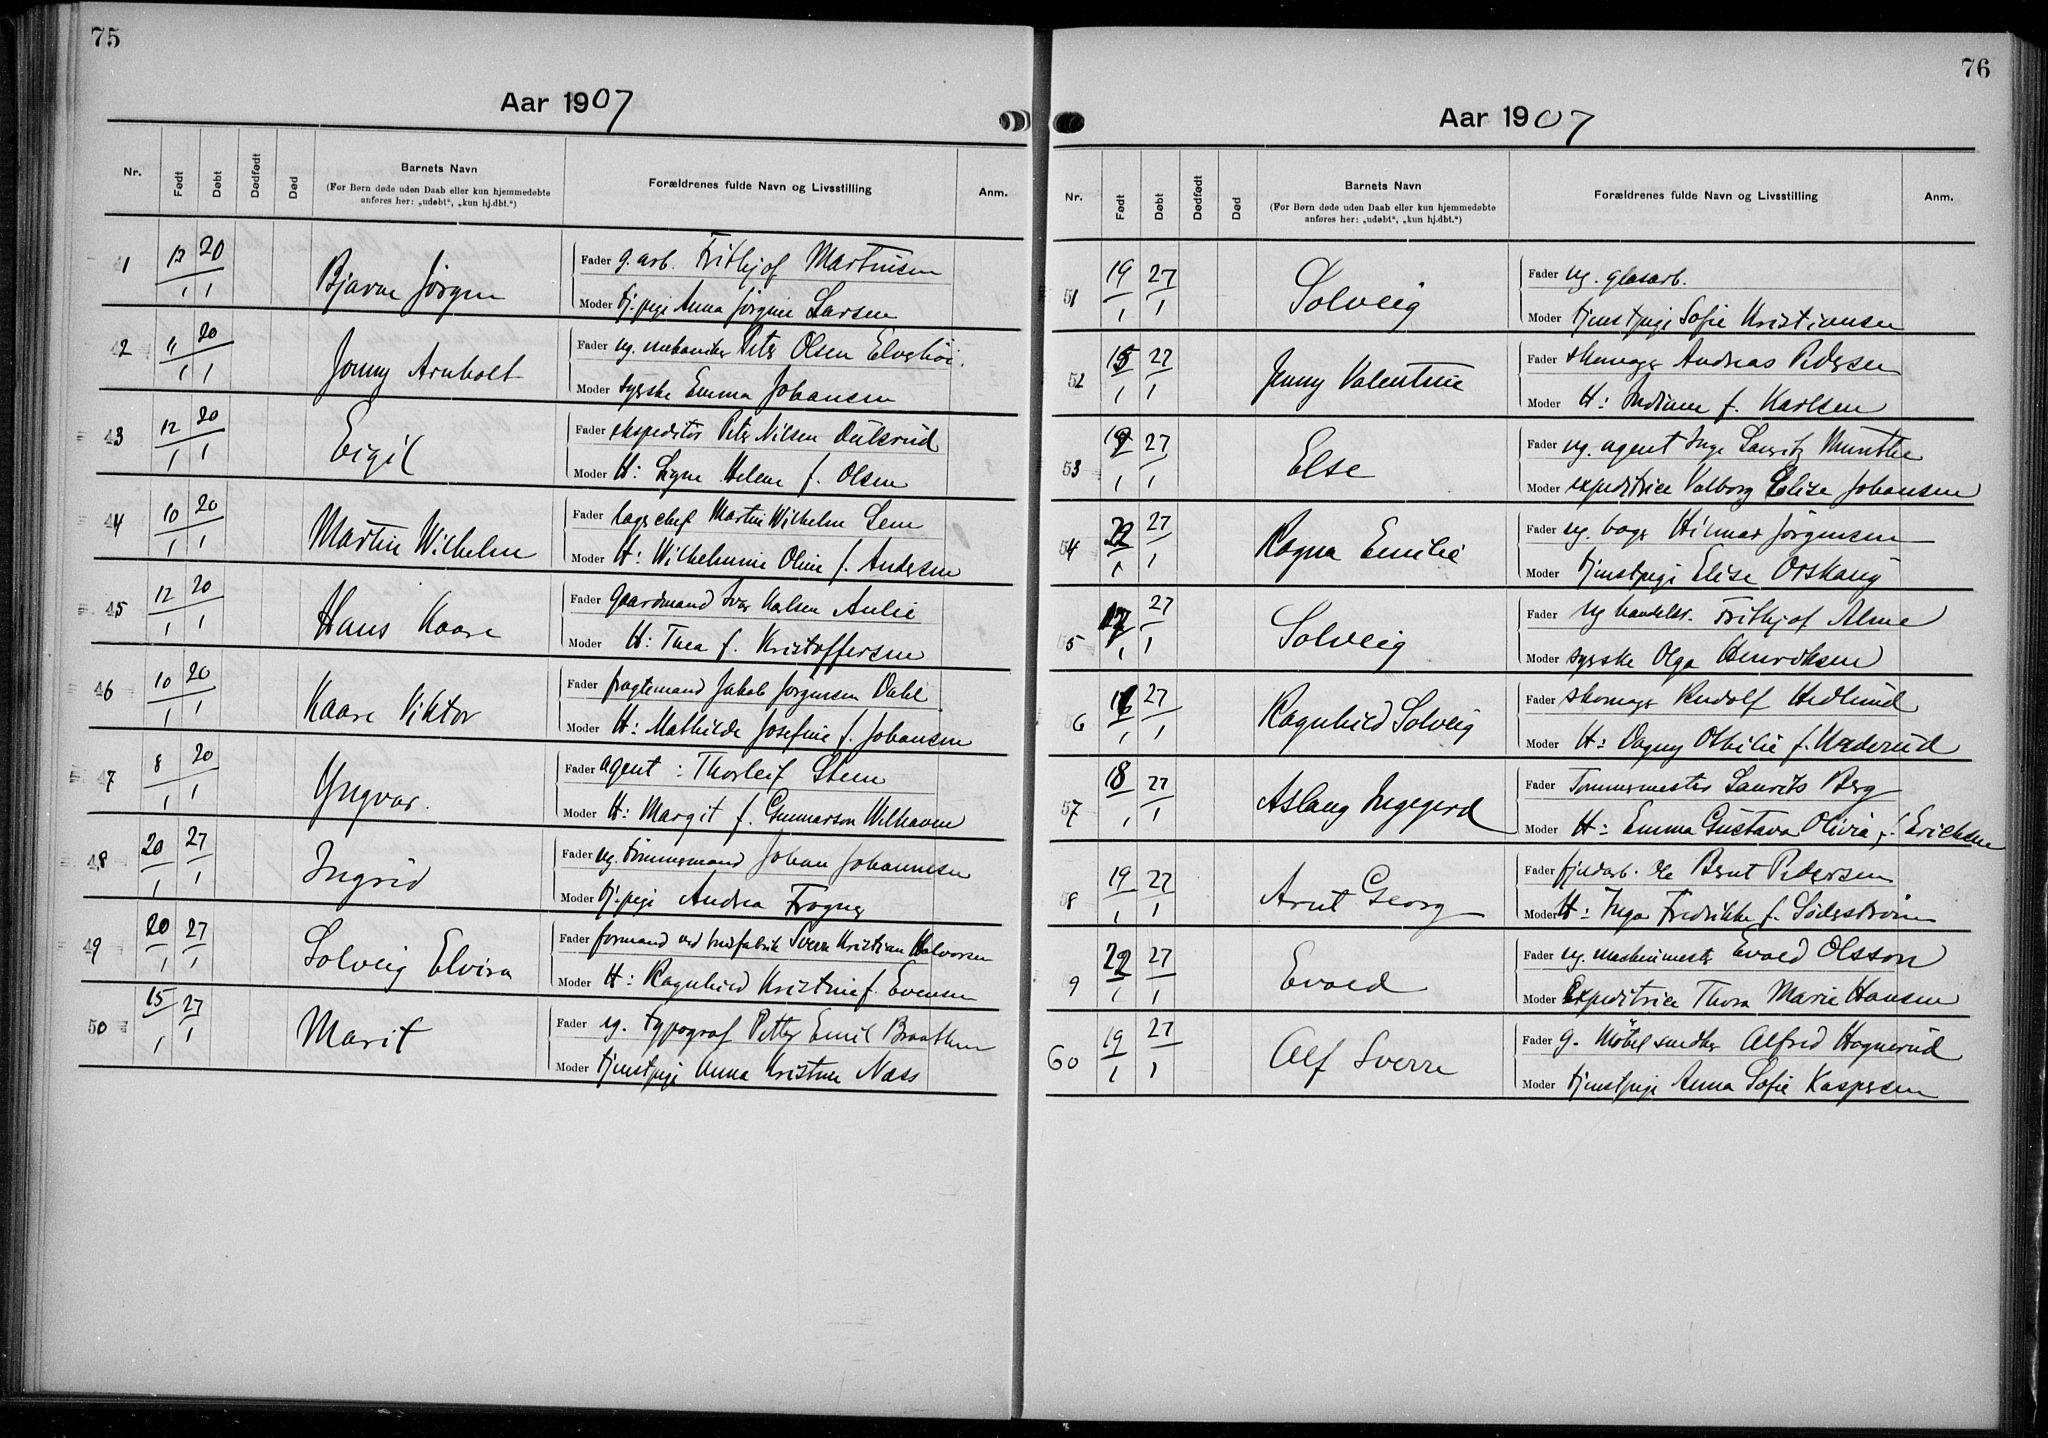 75
Aar 1907
Nr. Født Døbt Dødfødt Død Barnets Navn Forældrenes fulde Navn og Livsstilling Anm.
(For Børn døde uden Daab eller kun hjemmedøbte
anføres her: „udøbt“, „kun hj.dbt.“)
41 13/1 20/1 Bjarne Jørgen Fader g. arb. Frithjof Martinsen
Moder tj. pige Anna Jørgine Larsen
42 11/1 20/1 Jonny Arnholt Fader ug. mekaniker Peter Olsen Elvehøi.
Moder syerske Emma Johansen
43 12/1 20/1 Eigil Fader ekspeditør Peter Nilsen Dulsrud
Moder H: Signe Helene f. Olsen
44 10/1 20/1 Martin Wilhelm Fader lagerchef Martin Wilhelm Lem
Moder H: Wilhelmine Oline f. Andersen
45 12/1 20/1 Hans Kaare Fader Gaardmand Iver Karlsen Aulie
Moder H: Thea f. Kristoffersen
46 10/1 20/1 Kaare Viktor Fader fragtemand Jakob Jørgensen Dahl
Moder H: Mathilde Josefine f. Johansen
47 8/1 20/1 Yngvar. Fader agent : Thorleif Steen
Moder H: Margit f. Gunnarson Welhaven
48 20/1 27/1 Ingrid Fader ug. tømmermand Johan Johannesen
Moder tj. pige Andrea Frogner
49 20/1 27/1 Solveig Elvira Fader formand ved Sverre Kristian Halvorsen
Moder H: Ragnhild Kristine f. Evensen
50 15/1 27/1 Marit Fader ug. typograf Petter Emil Braathen
Moder tjenstpige Anna Kristine Næss
76
Aar 1907
Nr. Født Døbt Dødfødt Død Barnets Navn Forældrenes fulde Navn og Livsstilling Anm.
(For Børn døde uden Daab eller kun hjemmedøbte
anføres her: „udøbt“, „kun hj.dbt.“)
51 19/1 27/1 Solveig Fader ug. glasarb.
Moder tjenstpige Sofie Kristiansen
52 15/1 27/1 Jenny Valentine Fader skomager Andreas Pedersen
Moder H: f. Karlsen
53 19/1 27/1 Else Fader ug. agent Inge Lauritz Munthe
Moder expeditrice Valborg Elise Johansen
54 22/1 27/1 Ragna Emilie Fader ug. bager Hilmar Jørgensen
Moder tjenstpige Elise Orskaug
5 17/1 27/1 Solveig Fader ug handelsr. Frithjof Alme
Moder syerske Olga Henriksen
6 16/1 27/1 Ragnhild Solveig Fader skomager Rudolf Hedlund
Moder H: Dagny Othilie f. Uraderud
57 18/1 27/1 Aslaug Ingegerd Fader Tømmermester Laurits Berg
Moder H: Emma Gustava Olivia f. Erichsen
58 19/1 27/1 Arnt Georg Fader Bernt Pedersen
Moder H: Inga Fredrikke f. Söderström
9 22/1 27/1 Evald Fader ug. maskinmester Evald Olsson
Moder Expeditrice Thora Marie Hansen
60 19/1 27/1 Alf Sverre Fader g. Møbelsnedker Alfred Hagnerud
Moder tjenstpige Anna Sofie Kaspersen